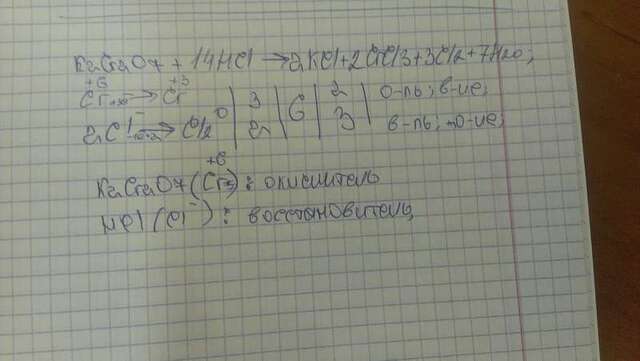 K2Cr2O7 + 14HCl → 2KCl + 2CrCl3 + 3Cl2 + 7H2O;
Cr+6 → Cr+3 | 3 | 6 | 2 | о-ль; в-ие;
2Cl- → Cl2 0 | 2 | | 3 | в-ль; о-ие;
K2Cr2O7 (Cr+6): окислитель
HCl (Cl-): восстановитель